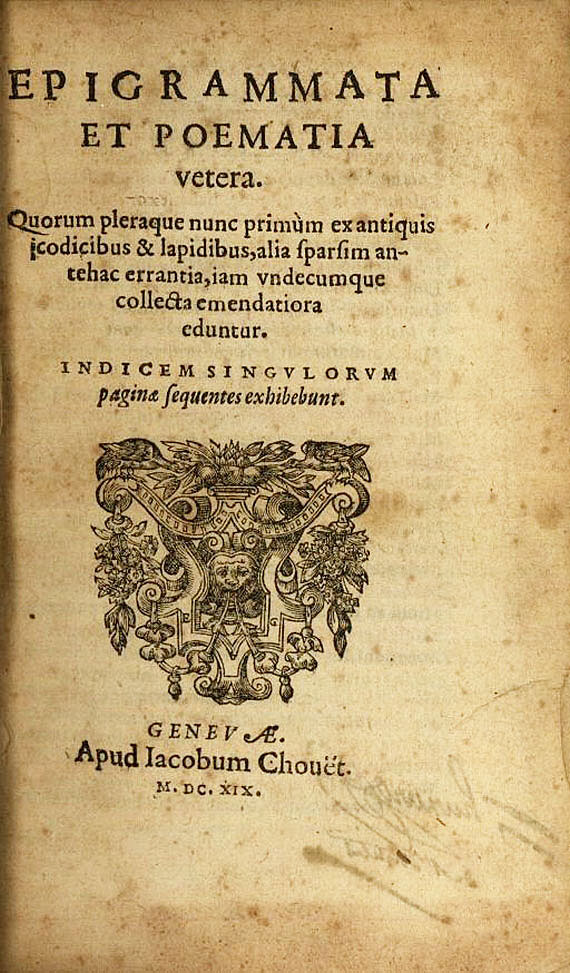 EPIGRAMMATA
ET POEMATIA
vetera.
Quorum pleraque nunc primùm ex antiquis
codicibus & lapidibus, alia ſparſim an-
tehac errantia, iam vndecumque
collecta emendatiora
eduntur.
INDICEM SINGVLORVM
paginæ ſequentes exhibebunt.
GENEVÆ.
Apud Iacobum Chouët.
M. DC. XIX.